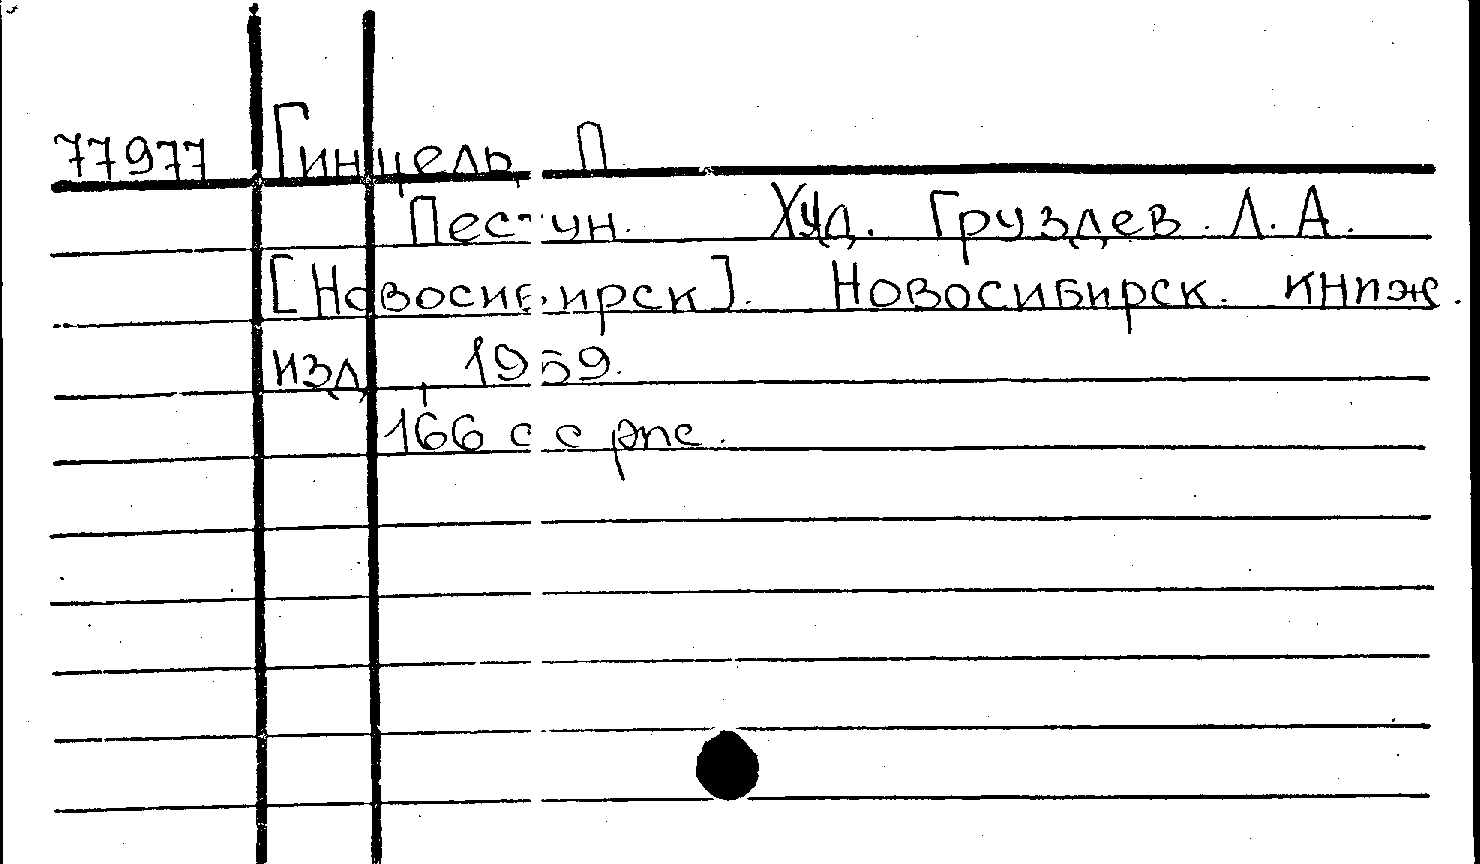 77977 Гинцель, П
Пестун. Худ. Груздев. Л. А.
[Новосибирск]. Новосибирск. книж.
изд, 1959.
166 с с рис.